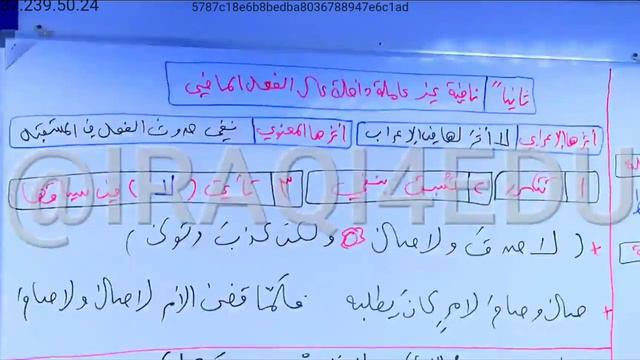 .239.50.24
5787c18e6b8bedba8036788947e6c1ad
ثانياً نافية غير عاملة داخلة على الفعل الماضي
أثرها الإعرابي لا أثر لها في الإعراب أثرها المعنوي نفي حدوث الفعل في المستقبل
@IRAQI4EDU
١ تتكرر ٢ تسبق بنفي ٣ تأتي (لا) في سياقها
+ ( لا صدق ولا صلى ولكن كذب وتولى )
+ صلى وصام لأمرٍ كان يطلبه فلمّا قضى الأمر لا صلى ولا صام